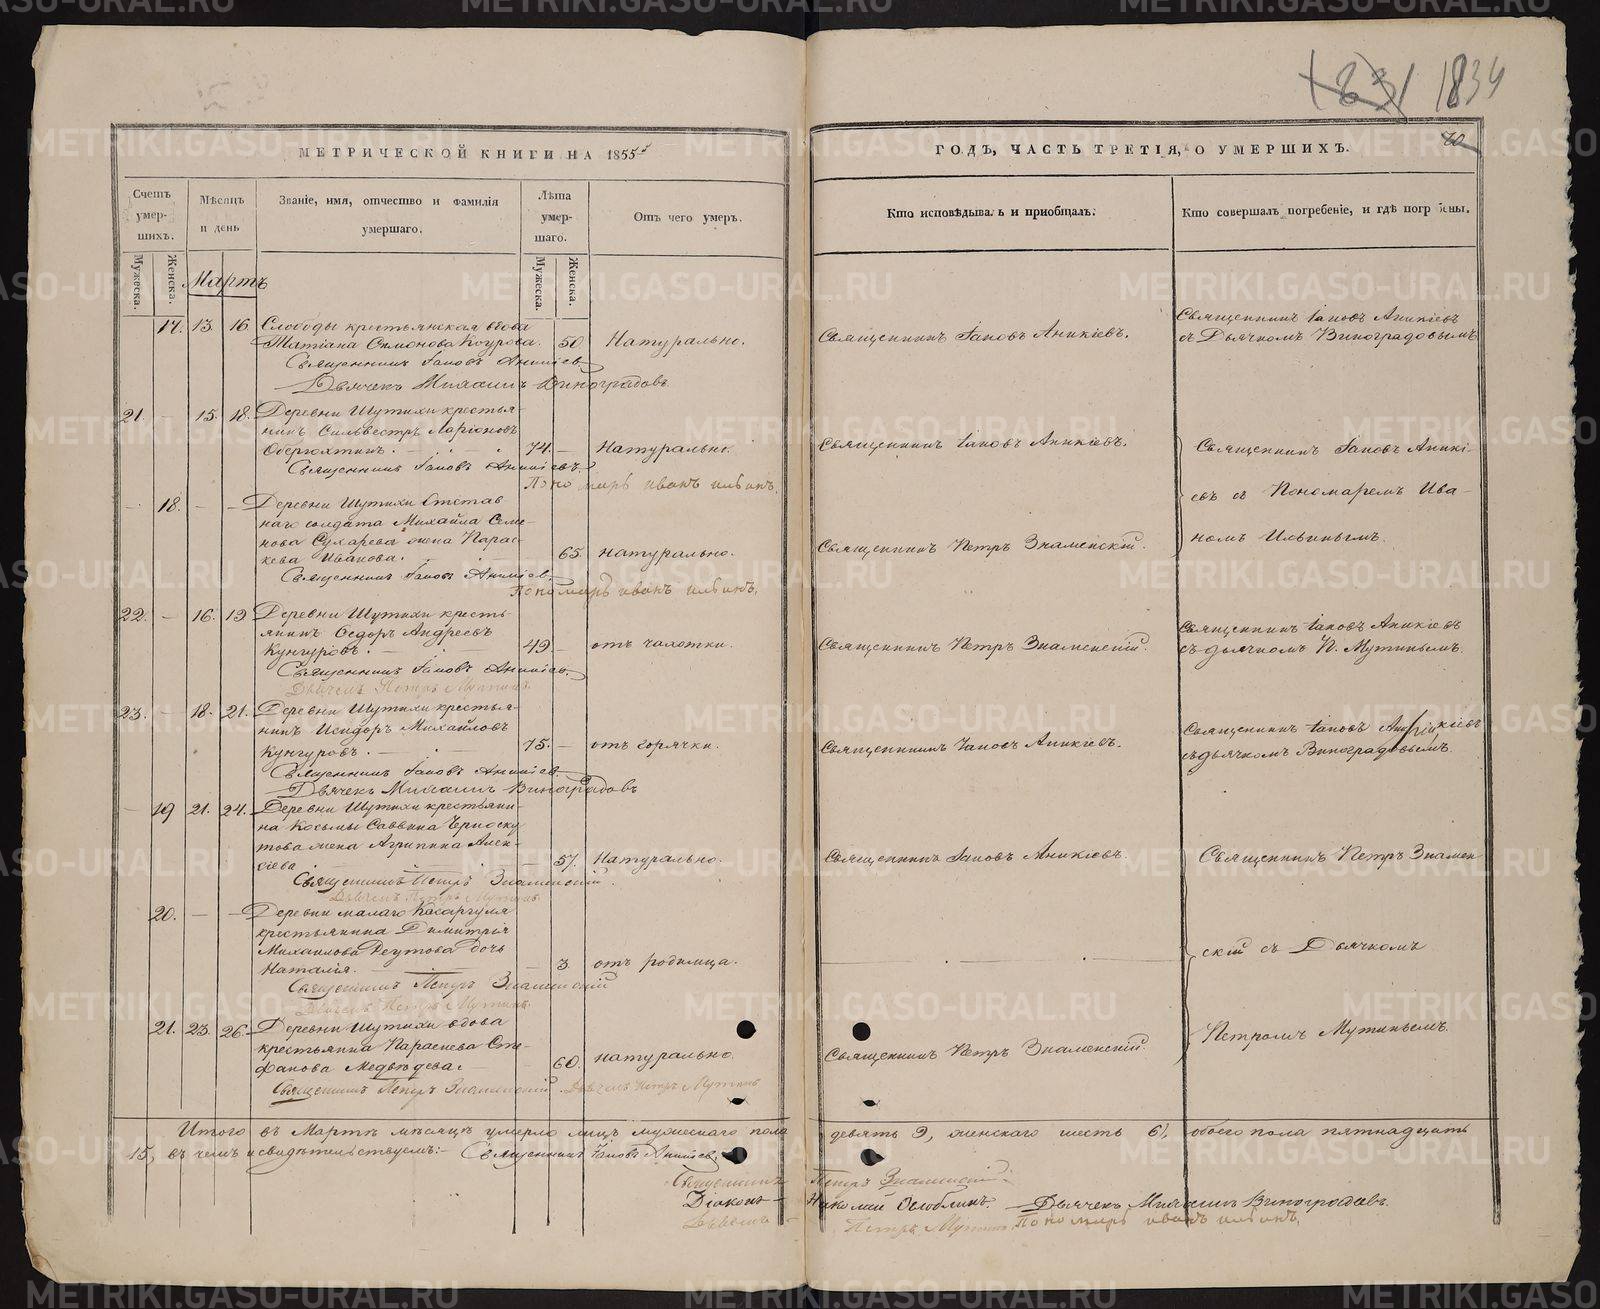 1831 1834
МЕТРИЧЕСКОЙ КНИГИ НА 1855 ГОДЪ, ЧАСТЬ ТРЕТІЯ, О УМЕРШИХЪ.
40
Счетъ умершихъ.
Мѣсяцъ и день
Званіе, имя, отчество и фамилія умершаго.
Лѣта умершаго.
Отъ чего умеръ.
Кто исповѣдывалъ и пріобщалъ.
Кто совершалъ погребеніе, и гдѣ погребены.
Мужеска. Женска.
Мужеска. Женска.
Мартъ
17. 13. 16. Слободы крестьянская вдова
Татіана Симонова Коурова. 50 Натурально. Священникъ Іаковъ Аникіевъ. Священникъ Іаковъ Аникіевъ
съ Дьячкомъ Виноградовымъ
Священникъ Іаковъ Аникіев
Дьячекъ Михаилъ Виноградовъ
21. - 15. 18. Деревни Шутихи крестья-
нинъ Сильвестръ Ларіоновъ
74. - Натурально. Священникъ Іаковъ Аникіевъ. Священникъ Іаковъ Аникі-
Священникъ Іаковъ Аникіевъ
Пономарь иванъ ильинъ
евъ съ Пономаремъ Ива-
- 18. - - Деревни Шутихи Отстав
наго солдата Михайла Семе-
нова Сухарева жена Парас-
номъ Ильинымъ.
кева Иванова. 65. натурально. Священникъ Петръ Знаменскій.
Священникъ Іаковъ Аникіев.
Пономарь иванъ ильинъ,
22. - 16. 19 Деревни Шутихи кресть-
янинъ Ѳедоръ Андреевъ
Священникъ Іаковъ Аникіевъ
Кунгуровъ. 49. - отъ чахотки. Священникъ Петръ Знаменскій. съ дьячкомъ П. Мутинымъ.
Священникъ Іаковъ Аникіев.
Дьячекъ Петръ Мутинъ
23. - 18. 21. Деревни Шутихи крестья-
нинъ Исидоръ Михайловъ
Священникъ Іаковъ Аникіевъ
Кунгуровъ. 75. - отъ горячки. Священникъ Іаковъ Аникіевъ. съ дьячкомъ Виноградовымъ.
Священникъ Іаковъ Аникіев
Дьячекъ Михаилъ Виноградовъ
- 19 21. 24. Деревни Шутихи крестьяни-
на Козьмы Саввина Черноску
това жена Агрипина Алек-
сіева 57. Натурально. Священникъ Іаковъ Аникіевъ. Священникъ Петръ Знамен
Священникъ Петръ Знаменскій.
Дьячекъ Петръ Мутинъ
20. - - Деревни малаго Касаргуля
крестьянина Димитрія
Михаилова Реутова дочь
скій съ Дьячкомъ
Наталія. 3. отъ родимца.
Священникъ Петръ Знаменскій
Дьячекъ Петръ Мутинъ
21. 23. 26. Деревни Шутихи вдова
крестьянка Параскева Сте-
Петромъ Мутинымъ.
фанова Медвѣдева. 60. натурально. Священникъ Петръ Знаменскій.
Священникъ Петръ Знаменскій. Дьячекъ Петръ Мутинъ
Итого въ Мартѣ мѣсяцѣ умерло лицъ мужескаго пола девять 9, женскаго шесть 6, обоего пола пятнадцать
15, въ чемъ и свидѣтельствуемъ:- Священникъ Іаковъ Аникіев.
Священникъ Петръ Знаменскій.
Діаконъ Николай Дьячекъ Михаилъ Виноградовъ.
Дьячекъ Петръ Мутинъ. Пономарь иванъ ильинъ,
METRIKI.GASO-URAL.RU